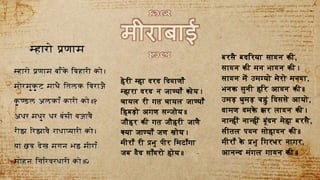 मीराबाई
म्हारो प्रणाम
म्हारो प्रणाम बाँके बिहारी को।
मोरमुकुट माथे तिलक बिराजै
कुण्डल अलकाँ कारी को॥
अधर मधुर धर बंसी बजावै
रीझ रिझावै राधाप्यारी को।
या छब देख मगन भई मीराँ
मोहन गिरिवरधारी को॥
हेरी म्हा दरद दिवाणौं
म्हारा दरद न जाण्याँ कोय।
घायल री गत घायल जाण्याँ
हिवडो अगण सन्जोय॥
जौहर की गत जौहरी जाणै
क्या जाण्याँ जण खोय।
मीराँ री प्रभु पीर मिटाँगा
जब वैद साँवरो होय॥
बरसै बदरिया सावन की,
सावन की मन भावन की।
सावन में उमग्यो मेरो मनवा,
भनक सुनी हरि आवन की॥
उमड़ घुमड़ चहुं दिससे आयो,
दामण दमके झर लावन की।
नान्हीं नान्हीं बूंदन मेहा बरसै,
सीतल पवन सोहावन की॥
मीराँ के प्रभु गिरधर नागर,
आनन्द मंगल गावन की॥